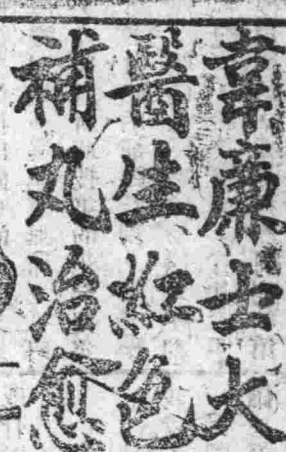 韋廉士大
醫生紅色
補丸治愈